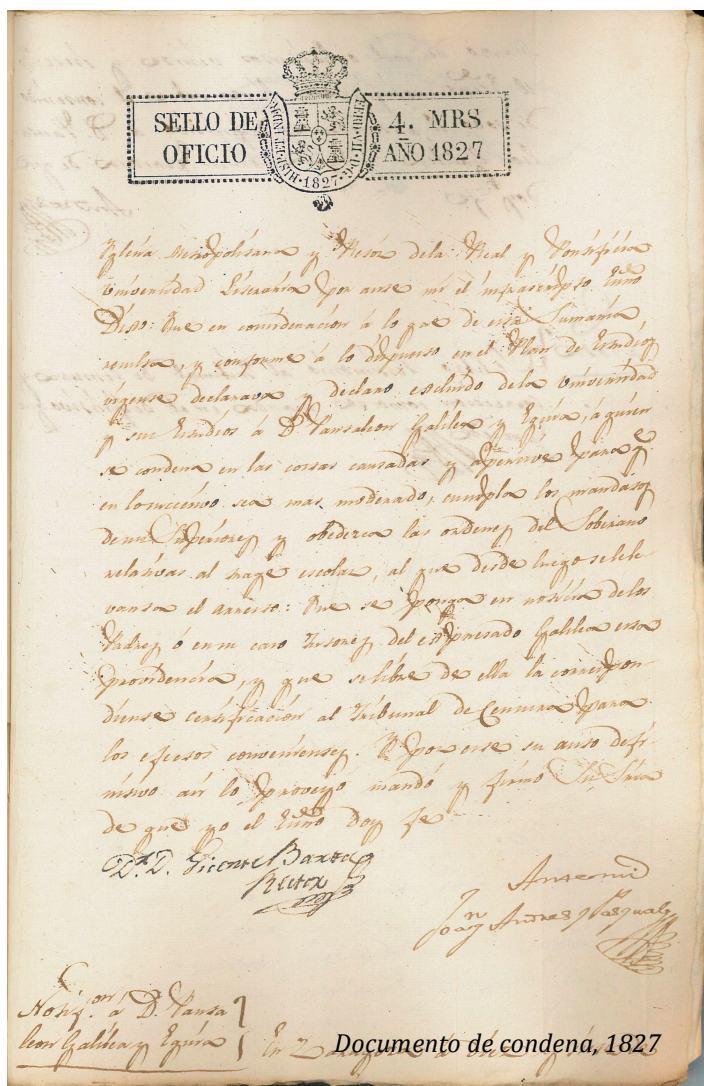 SELLO DE OFICIO
4. MRS AÑO 1827
HISP. ET IND. 1827
Yglesia Metropolitana y Retor dela Real y Pontificia
Universidad Literaria por ante mi el infrascripto Essno
Dixo: Que en consideracion á lo que de esta Sumaria,
resulta, y conforme á lo dispuesto en el Plan de Estudios
vigente declarava y declaro escluido dela Universidad
y sus Estudios á Dn. Pantaleon Galilea y Eguia, á quien
se condena en las costas causadas y apercive para q.e
en losuccesivo sea mas moderado, cumpla los mandatos
desus Superiores y obedezca las ordenes del Soberano
relativas al trage escolar, al que desde luego sele le
vanta el arresto: Que se ponga en noticia delos
Padres ó ensu caso Tutores del expresado Galilea esta
providencia, y que selibre de ella la correspon
diente certificacion al Tribunal de Censura para
los efectos convenientes. Y por este su auto defi
nitivo asi lo proveyó mandó y firmó Su Sria
de que yo el Essno Doy fe
Dr. D. Vicente
Retor
Antemi
Joaqn Andres y Pasqual
Notifon. á Dn. Panta
leon Galilea y Eguia
En Zaragoza á diez y
Documento de condena, 1827